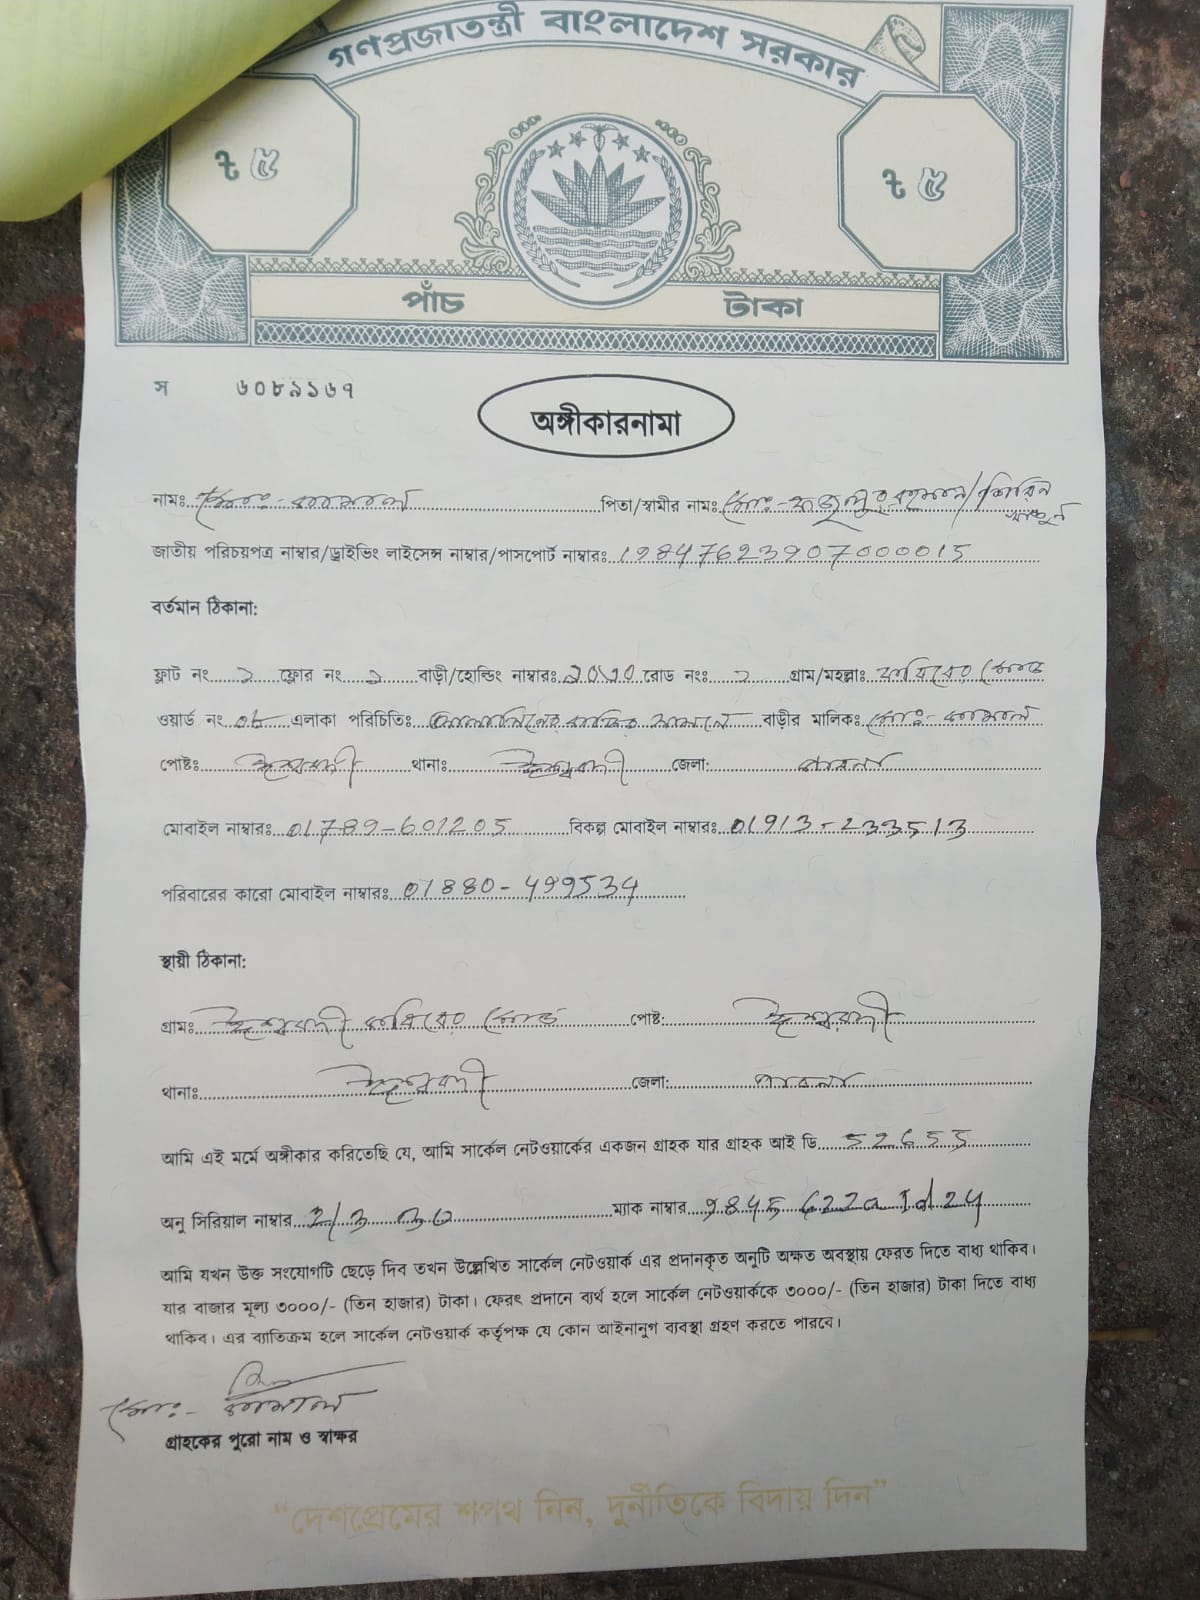 গণপ্রজাতন্ত্রী বাংলাদেশ সরকার
৳ ৫ ৳ ৫
পাঁচ টাকা
স ৬০৮৯১৬৭
অঙ্গীকারনামা
নামঃ মোঃ- কামাল পিতা/স্বামীর নামঃ মোঃ- ফজলুর রহমান/শিরিন
জাতীয় পরিচয়পত্র নাম্বার/ড্রাইভিং লাইসেন্স নাম্বার/পাসপোর্ট নাম্বারঃ 19847623907000015
বর্তমান ঠিকানা:
ফ্লাট নং ফ্লোর নং বাড়ী/হোল্ডিং নাম্বারঃ রোড নংঃ গ্রাম/মহল্লাঃ
ওয়ার্ড নং এলাকা পরিচিতিঃ বাড়ীর মালিকঃ মোঃ- কামাল
পোষ্টঃ ঈশ্বরদী থানাঃ ঈশ্বরদী জেলা: পাবনা
মোবাইল নাম্বারঃ 01789-601205 বিকল্প মোবাইল নাম্বারঃ 01913-233513
পরিবারের কারো মোবাইল নাম্বারঃ 01880-499534
স্থায়ী ঠিকানা:
গ্রামঃ ঈশ্বরদী পোষ্ট: ঈশ্বরদী
থানাঃ ঈশ্বরদী জেলা: পাবনা
আমি এই মর্মে অঙ্গীকার করিতেছি যে, আমি সার্কেল নেটওয়ার্কের একজন গ্রাহক যার গ্রাহক আই ডি 52655
অনু সিরিয়াল নাম্বার ম্যাক নাম্বার
আমি যখন উক্ত সংযোগটি ছেড়ে দিব তখন উল্লেখিত সার্কেল নেটওয়ার্ক এর প্রদানকৃত অনুটি অক্ষত অবস্থায় ফেরত দিতে বাধ্য থাকিব।
যার বাজার মূল্য ৩০০০/- (তিন হাজার) টাকা। ফেরৎ প্রদানে ব্যর্থ হলে সার্কেল নেটওয়ার্ককে ৩০০০/- (তিন হাজার) টাকা দিতে বাধ্য
থাকিব। এর ব্যাতিক্রম হলে সার্কেল নেটওয়ার্ক কর্তৃপক্ষ যে কোন আইনানুগ ব্যবস্থা গ্রহণ করতে পারবে।
মোঃ- কামাল
গ্রাহকের পুরো নাম ও স্বাক্ষর
“দেশপ্রেমের শপথ নিন, দুর্নীতিকে বিদায় দিন”